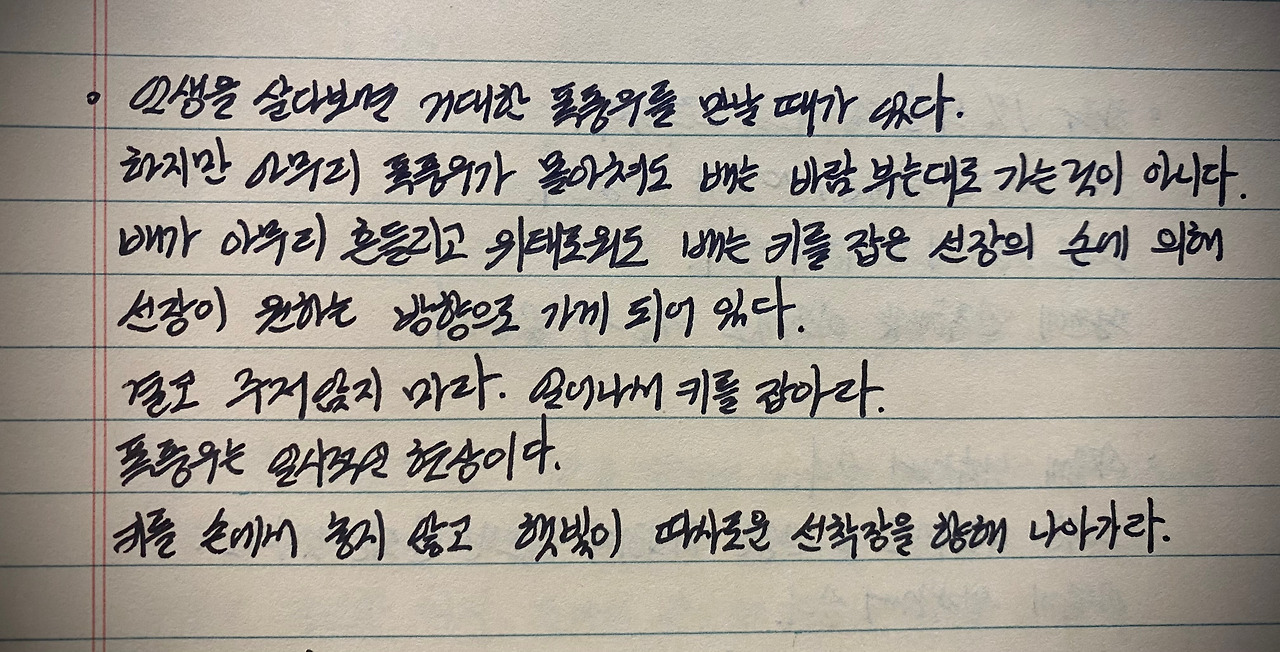 인생을 살다보면 거대한 폭풍우를 만날 때가 있다.
하지만 아무리 폭풍우가 몰아쳐도 배는 바람 부는대로 가는 것이 아니다.
배가 아무리 흔들리고 위태로워도 배는 키를 잡은 선장의 손에 의해
선장이 원하는 방향으로 가게 되어 있다.
결코 주저앉지 마라. 일어나서 키를 잡아라.
폭풍우는 일시적인 현상이다.
키를 손에서 놓지 않고 햇빛이 따사로운 선착장을 향해 나아가라.